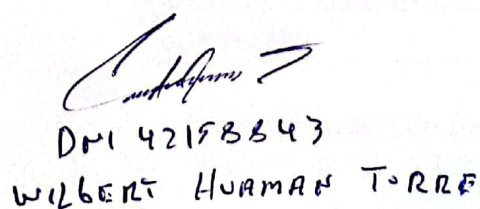 DNI 42158843
WILBERT HUAMAN TORRE